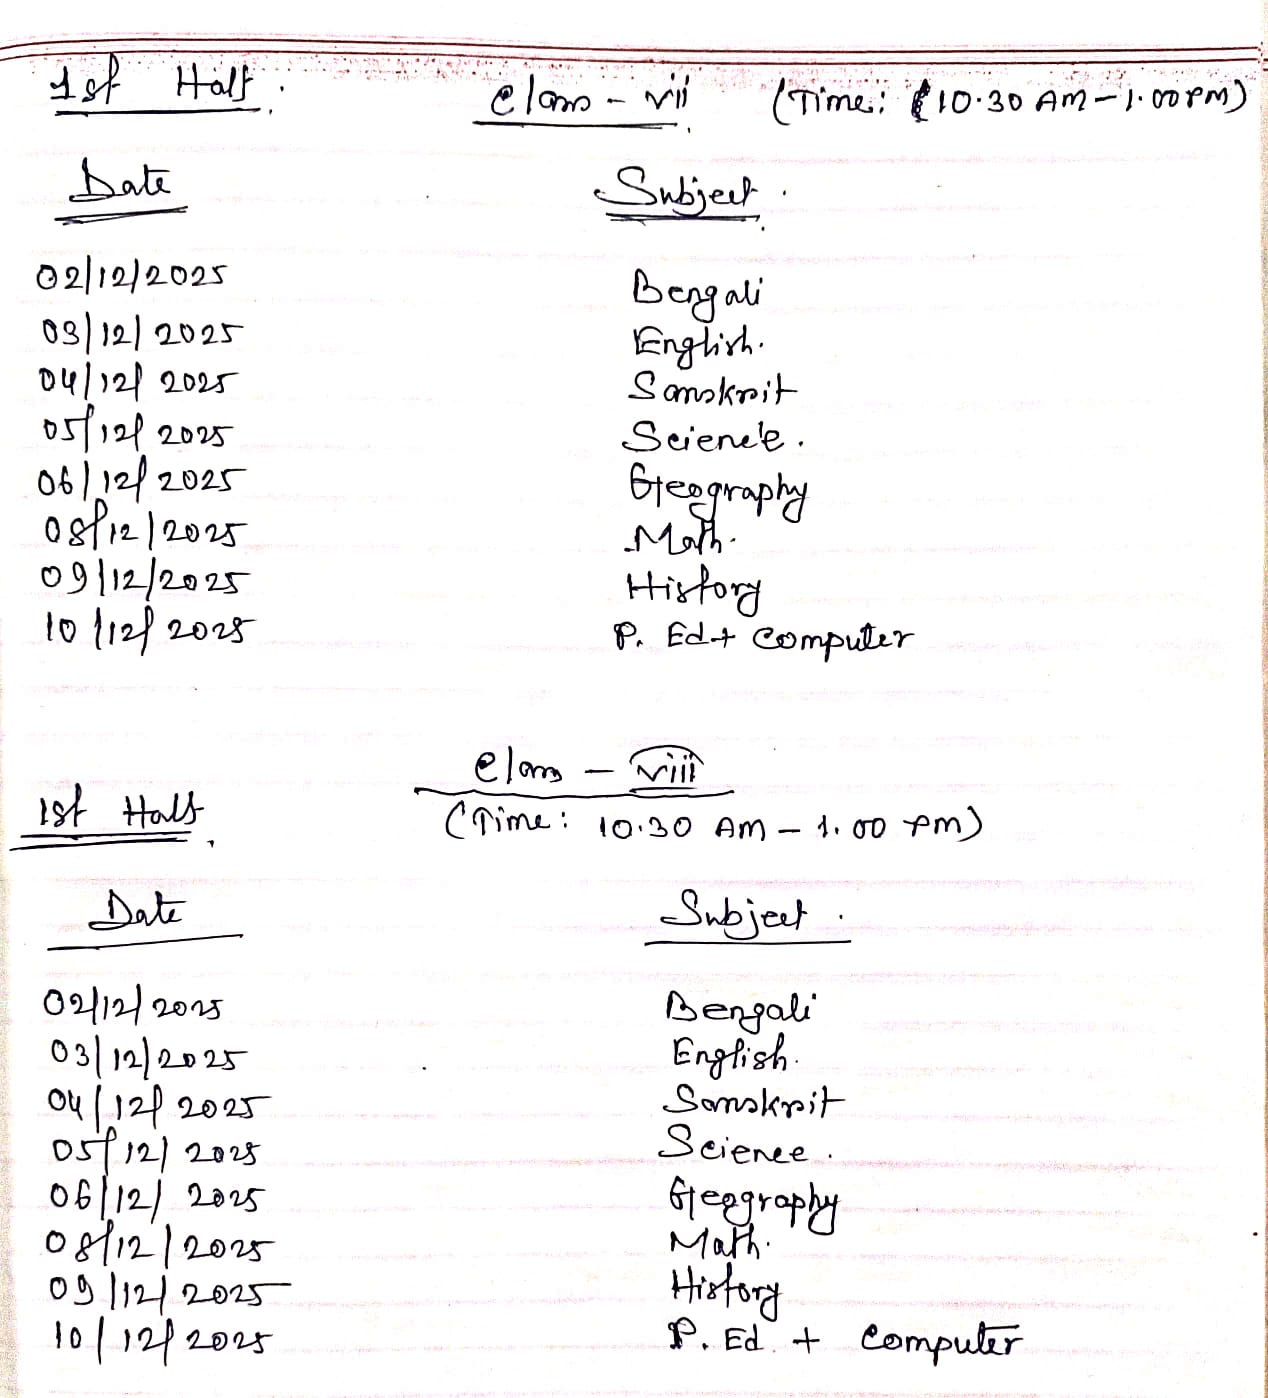 1st Half. Class - vii (Time: 10.30 AM - 1.00 PM)
Date Subject.
02/12/2025 Bengali
03/12/2025 English.
04/12/2025 Sanskrit
05/12/2025 Science.
06/12/2025 Geography
08/12/2025 Math.
09/12/2025 History
10/12/2025 P. Ed + Computer
Class - viii
1st Half. (Time: 10.30 AM - 1.00 PM)
Date Subject.
02/12/2025 Bengali
03/12/2025 English.
04/12/2025 Sanskrit
05/12/2025 Science.
06/12/2025 Geography
08/12/2025 Math.
09/12/2025 History
10/12/2025 P. Ed. + Computer